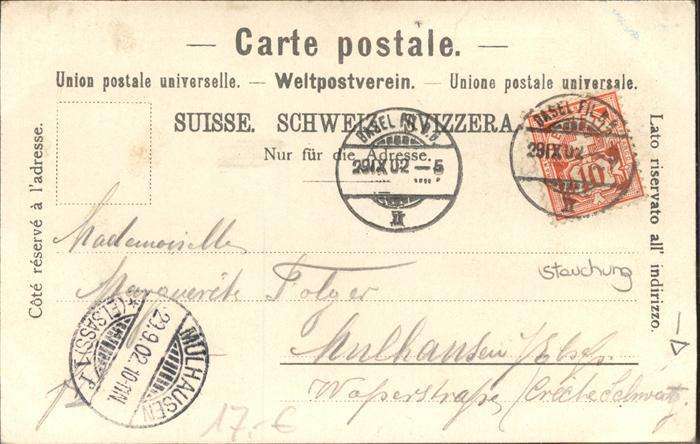 — Carte postale. —
Union postale universelle. — Weltpostverein. — Unione postale universale.
SUISSE. SCHWEIZ. SVIZZERA.
Nur für die Adresse.
Côté réservé à l'adresse.
Lato riservato all' indirizzo.
BASEL
29 IX 02 – 5
BASEL
29 IX 02
10
Mademoiselle
Marguerite Folger
Mulhausen
stauchung
MÜLHAUSEN
29.9.02. 10-11N.
(ELSASS)
17.-€